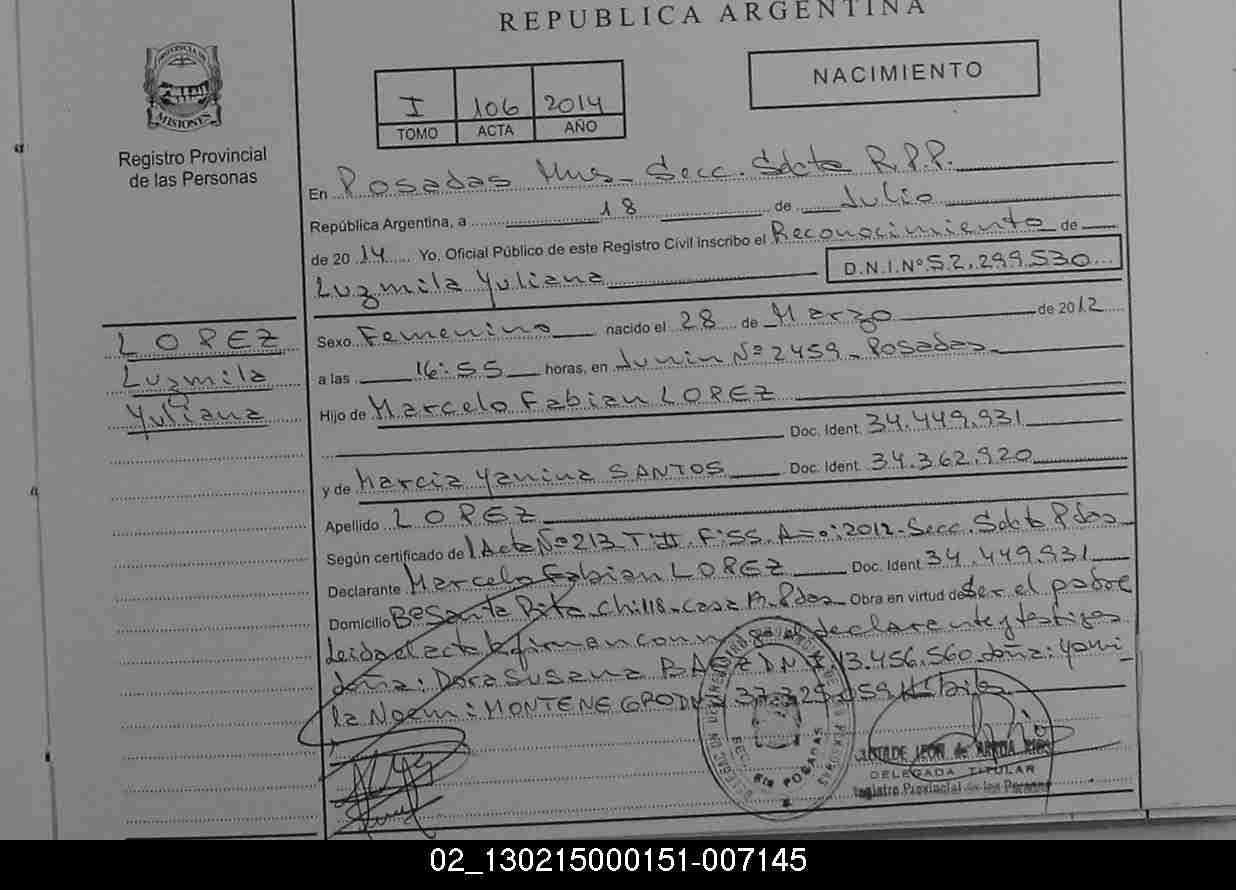 REPUBLICA ARGENTINA
MISIONES
Registro Provincial
de las Personas
I 106 2014
TOMO ACTA AÑO
NACIMIENTO
En Posadas Mns. Secc. Sdcta R.P.P.
República Argentina, a 18 de Julio
de 2014 Yo, Oficial Público de este Registro Civil inscribo el Reconocimiento de
Luzmila Yuliana D.N.I.Nº 52.299.530
LOPEZ
Luzmila
Yuliana
Sexo Femenino nacido el 28 de Marzo de 2012
a las 16:55 horas, en Junin Nº 2459 - Posadas
Hijo de Marcelo Fabian LOPEZ
Doc. Ident. 34.449.931
y de Marcia Yanina SANTOS Doc. Ident. 34.362.920
Apellido LOPEZ
Según certificado de Acta Nº 213 T II F 55 Año: 2012 - Secc. Sdcta Pdas
Declarante Marcelo Fabian LOPEZ Doc. Ident 34.449.931
Domicilio Bº Santa Rita Ch 118 - Casa Pdas Obra en virtud de Ser el padre
Leida el acta firman conmigo el declarante y testigos
doña: Dora Susana BAEZ DNI 13.456.560 doña: Yami-
la Noemi: MONTENEGRO DNI 37.329.059
POSADAS
LEON de
DELEGADA TITULAR
Registro Provincial de las Personas
02_130215000151-007145